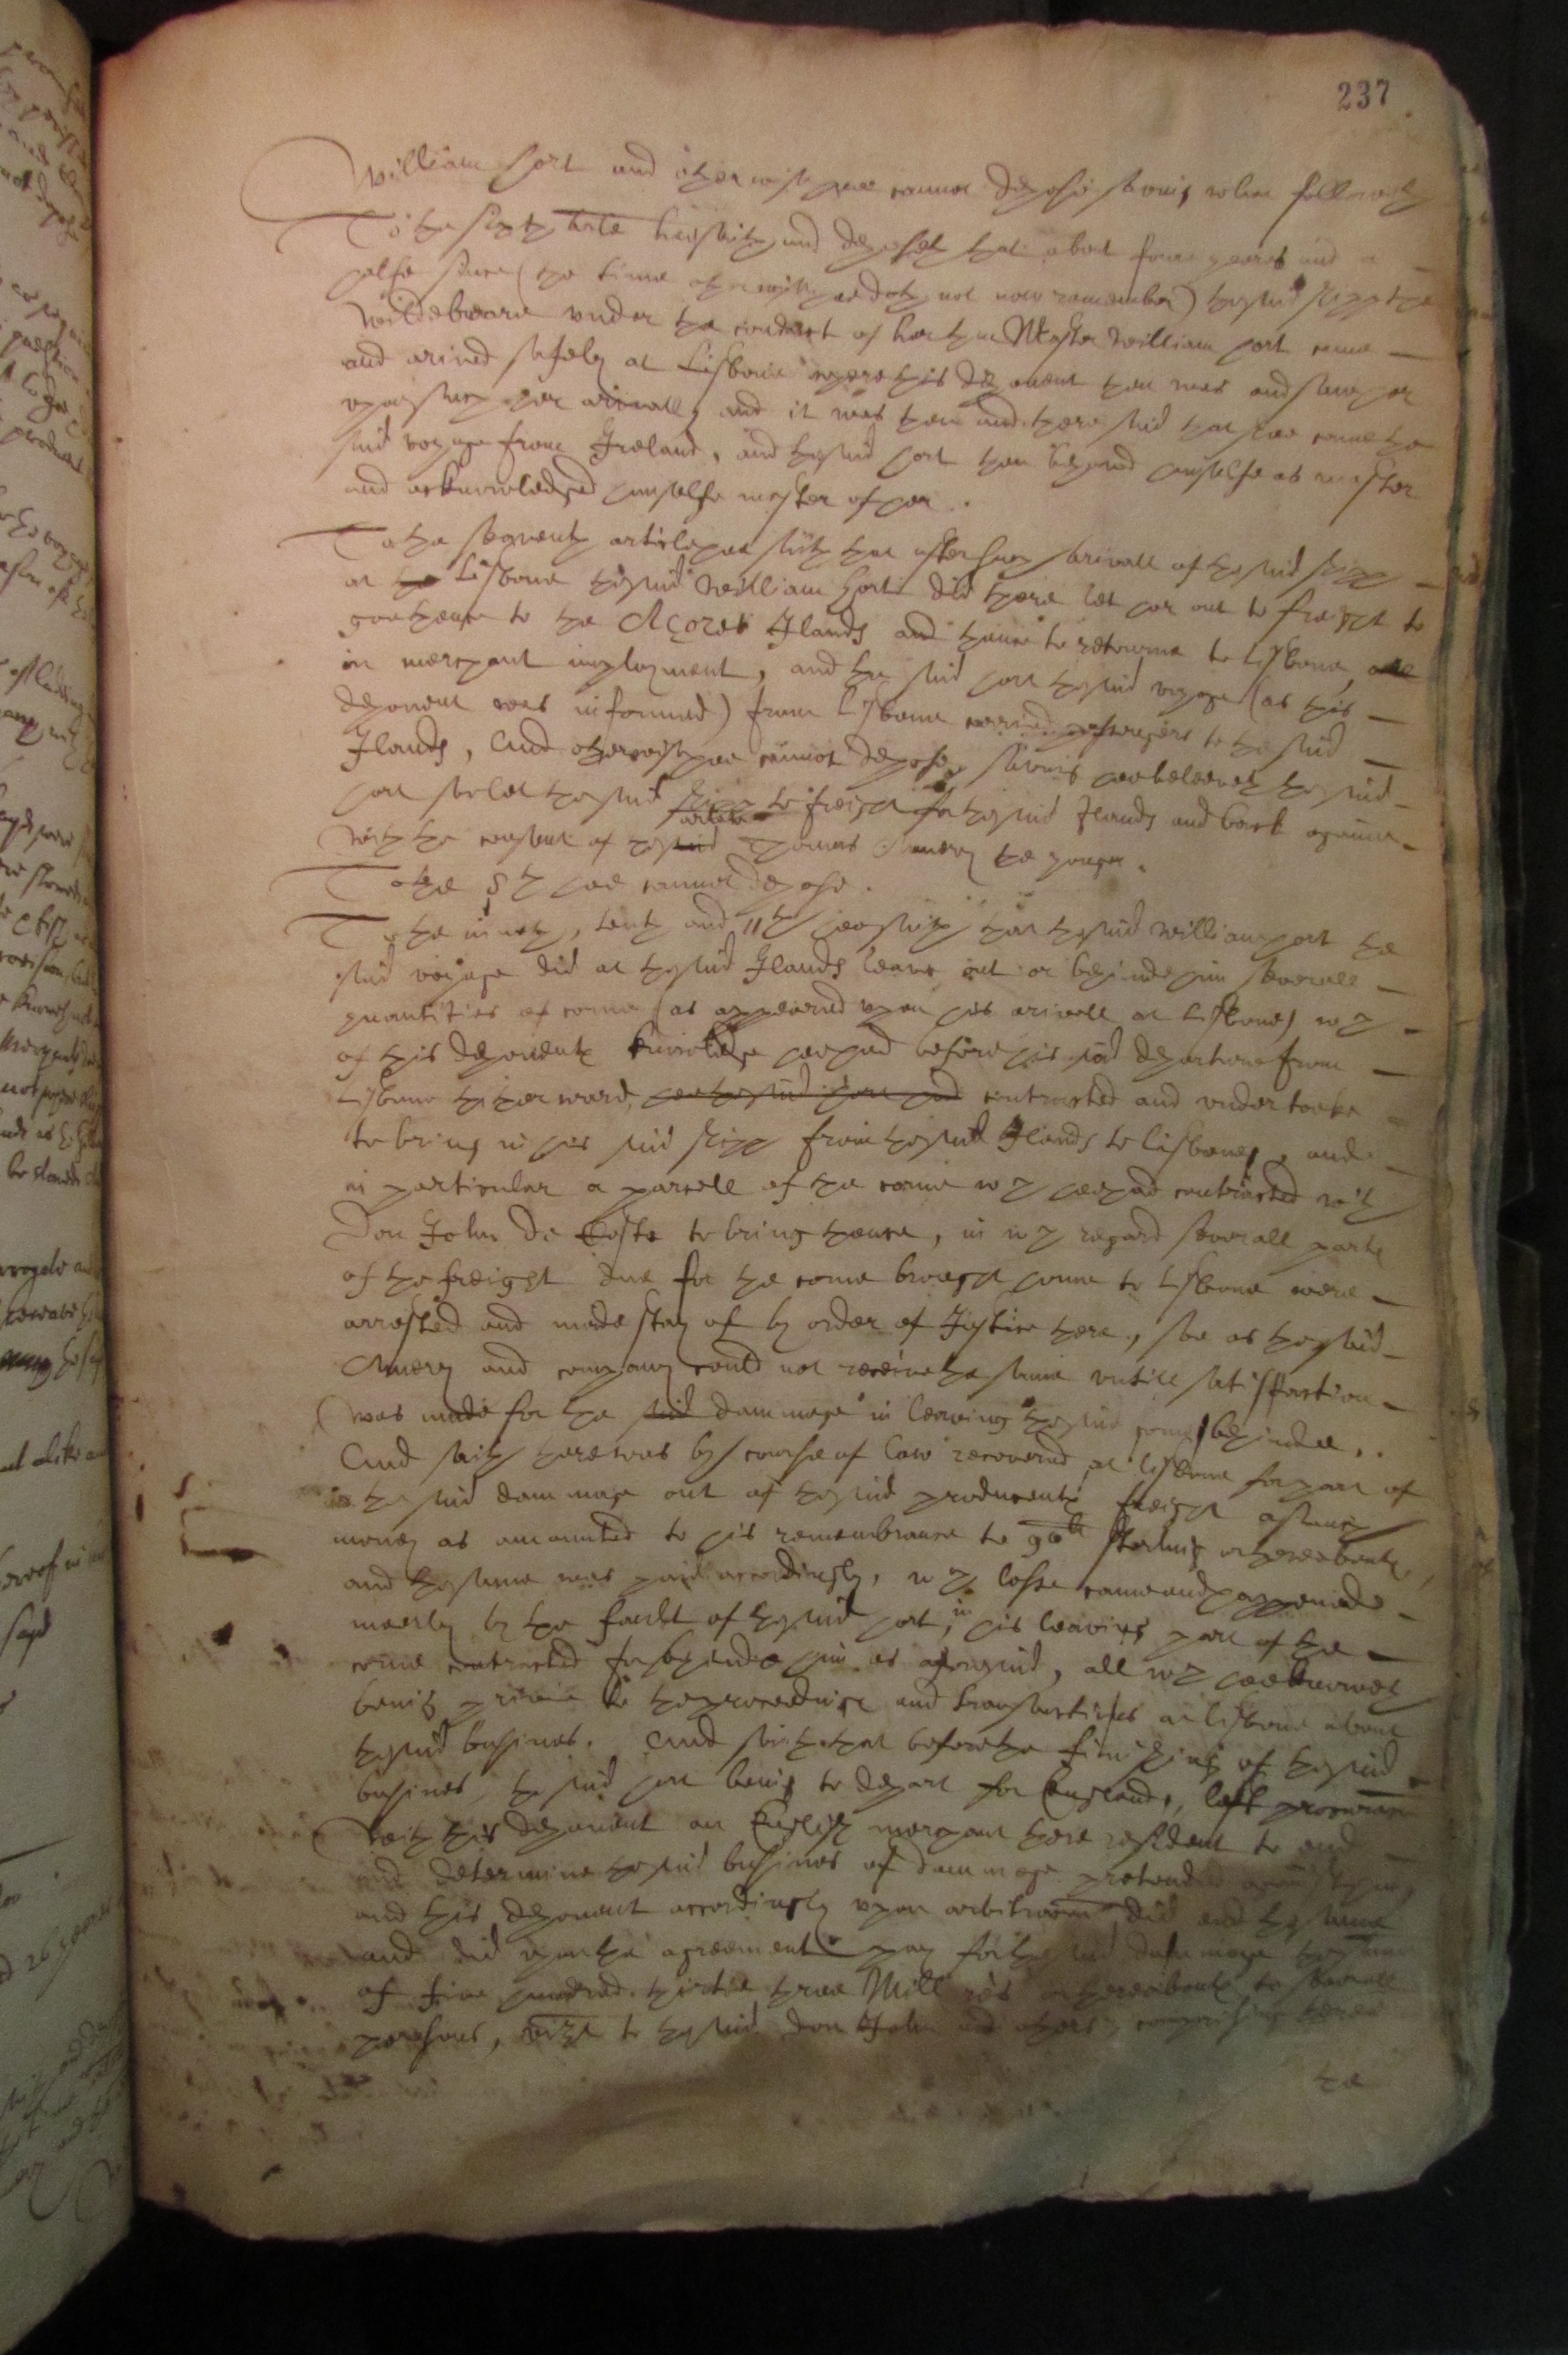 237
William hort and otherwise hee cannot depose saving what followeth
To the sixth article hee saith and deposeth that about foure yeares and a
halfe since (the time otherwise hee doth not now remember) the said shipp the
Wildeboare under the conduct of her then Master William hort came
and arived safely at Lisbone where this deponent then was and saw her
upon such her arivall, and it was then and there said that shee came the
said voyage from Ireland, and the said hort then behaved himselfe as master
and acknowledged himselfe master of her.
To the seaventh article hee saith that after such arivall of the said shipp
at the Lisbone the said William hort did there let her out to freight to
goe thence to the Açores Ilands and thence to retourne to Lisbone, all
in merchant imployment, and the said hort the said voyage (as this
deponent was informed) from Lisbone carried passengers to the said
Ilands, And otherwise hee cannot depose, saving hee beleeveth the said
hort soe let the said shipp to freight for the said Ilands and back againe
with the consent of the said arlate Thomas Amery the yonger.
To the 8th hee cannot depose.
To the nineth, tenth and 11th hee saith that the said William hort the
said voyage did at the said Ilands leave out or behinde him severall
quantities of corne (as appeared upon his arivall at Lisbone) wch
of this deponents knowledge hee had before his said departure from
Lisbone thitherward, hee the said hort had contracted and undertooke
to bring in his said shipp from the said Ilands to Lisbone, and
in particular a parcell of the corne wch hee had contracted with
Don John de Costa to bring thence, in wch regard severall parts
of the freight due for the corne brought home to Lisbone were
arrested and made stay of by order of Justice there, soe as the said
Amery and company could not receive the same untill satisfaction
was made for the said dammage in leaving the said corne behinde.
And saith there was by course of law recovered at Lisbone for part of
the said dammage out of the said producents freight as much
money as amounted to his remembrance to 90li sterling or thereabouts,
and the same was paid accordingly, wch losse came and happened
meerly by the fault of the said hort, in his leaving part of the
corne contracted for behinde him as aforesaid, all wch hee knoweth
being privie to the proceedings and transactions at Lisbone about
the said busines. And saith that before the finishing of the said
busines, the said hort being to depart for England, left procuration
with this deponent an English merchant there resident to end
and determine the said busines of dammage pretended against him,
and this deponent accordingly upon arbitracon did end the same
and did upon the agreement pay for the said dammage the summe
of five hundred thirtie three Mill res or thereabouts to severall
persons, vizt to the said don John and others comprising therein
the